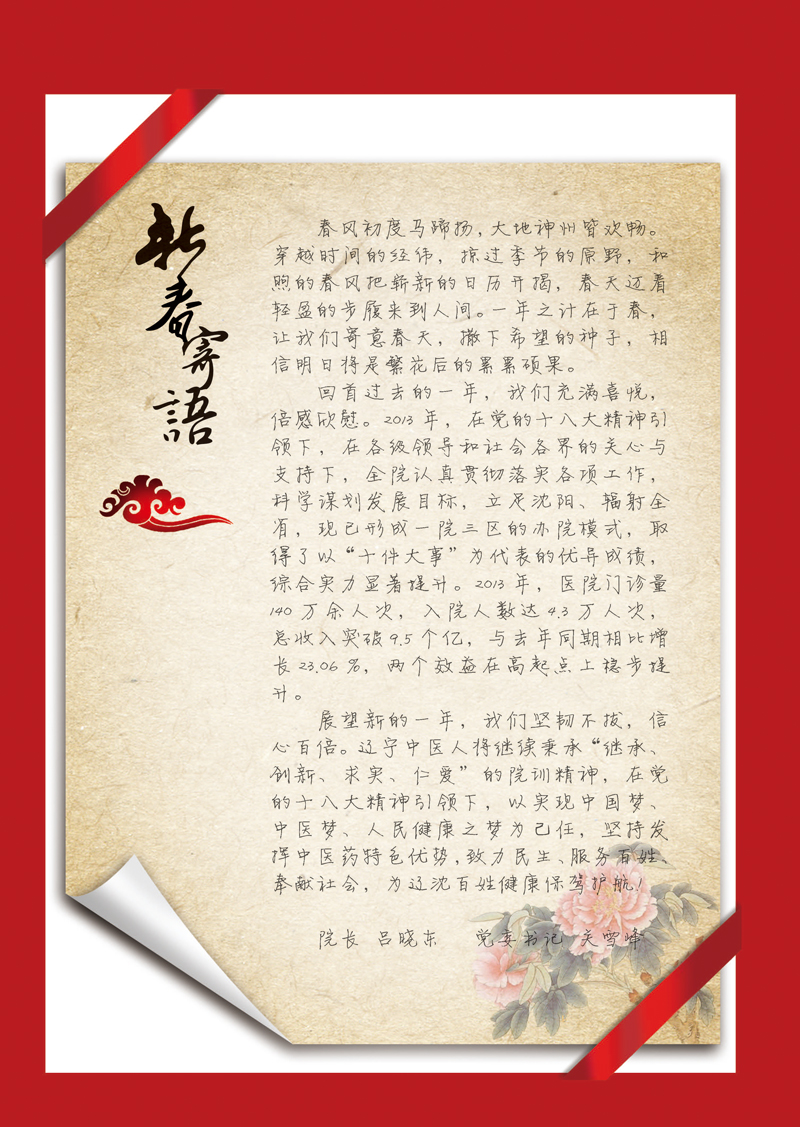 新春寄語
春风初度马蹄扬,大地神州皆欢畅。
穿越时间的经纬，掠过季节的原野，和
煦的春风把崭新的日历开揭，春天迈着
轻盈的步履来到人间。一年之计在于春，
让我们寄意春天，撒下希望的种子，相
信明日将是繁花后的累累硕果。
回首过去的一年，我们充满喜悦，
倍感欣慰。2013 年，在党的十八大精神引
领下，在各级领导和社会各界的关心与
支持下，全院认真贯彻落实各项工作，
科学谋划发展目标，立足沈阳、辐射全
省，现已形成一院三区的办院模式，取
得了以“十件大事”为代表的优异成绩，
综合实力显著提升。2013 年，医院门诊量
140 万余人次，入院人数达 4.3 万人次，
总收入突破 9.5 个亿，与去年同期相比增
长 23.06 %，两个效益在高起点上稳步提
升。
展望新的一年，我们坚韧不拔，信
心百倍。辽宁中医人将继续秉承“继承、
创新、求实、仁爱”的院训精神，在党
的十八大精神引领下，以实现中国梦、
中医梦、人民健康之梦为己任，坚持发
挥中医药特色优势,致力民生、服务百姓、
奉献社会，为辽沈百姓健康保驾护航！
院长 吕晓东 党委书记 关雪峰